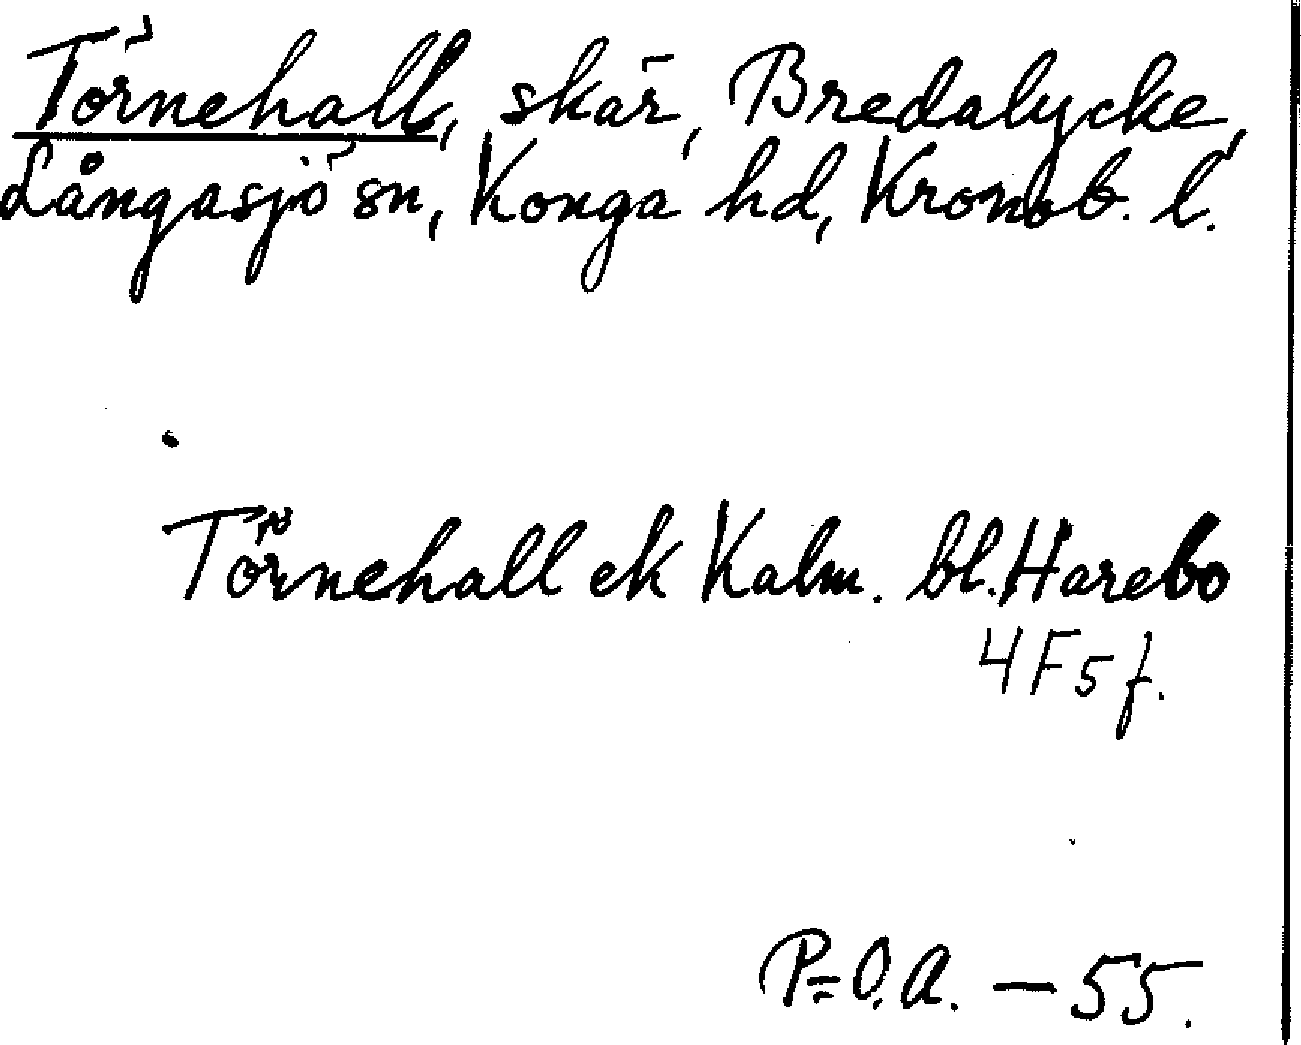 Törnehall, skär, Bredalycke,
Långasjö sn, Konga hd, Kronob. l.
Törnehall ek Kalm. bl. Harebo
4F5f.
P=O.A. — 55.